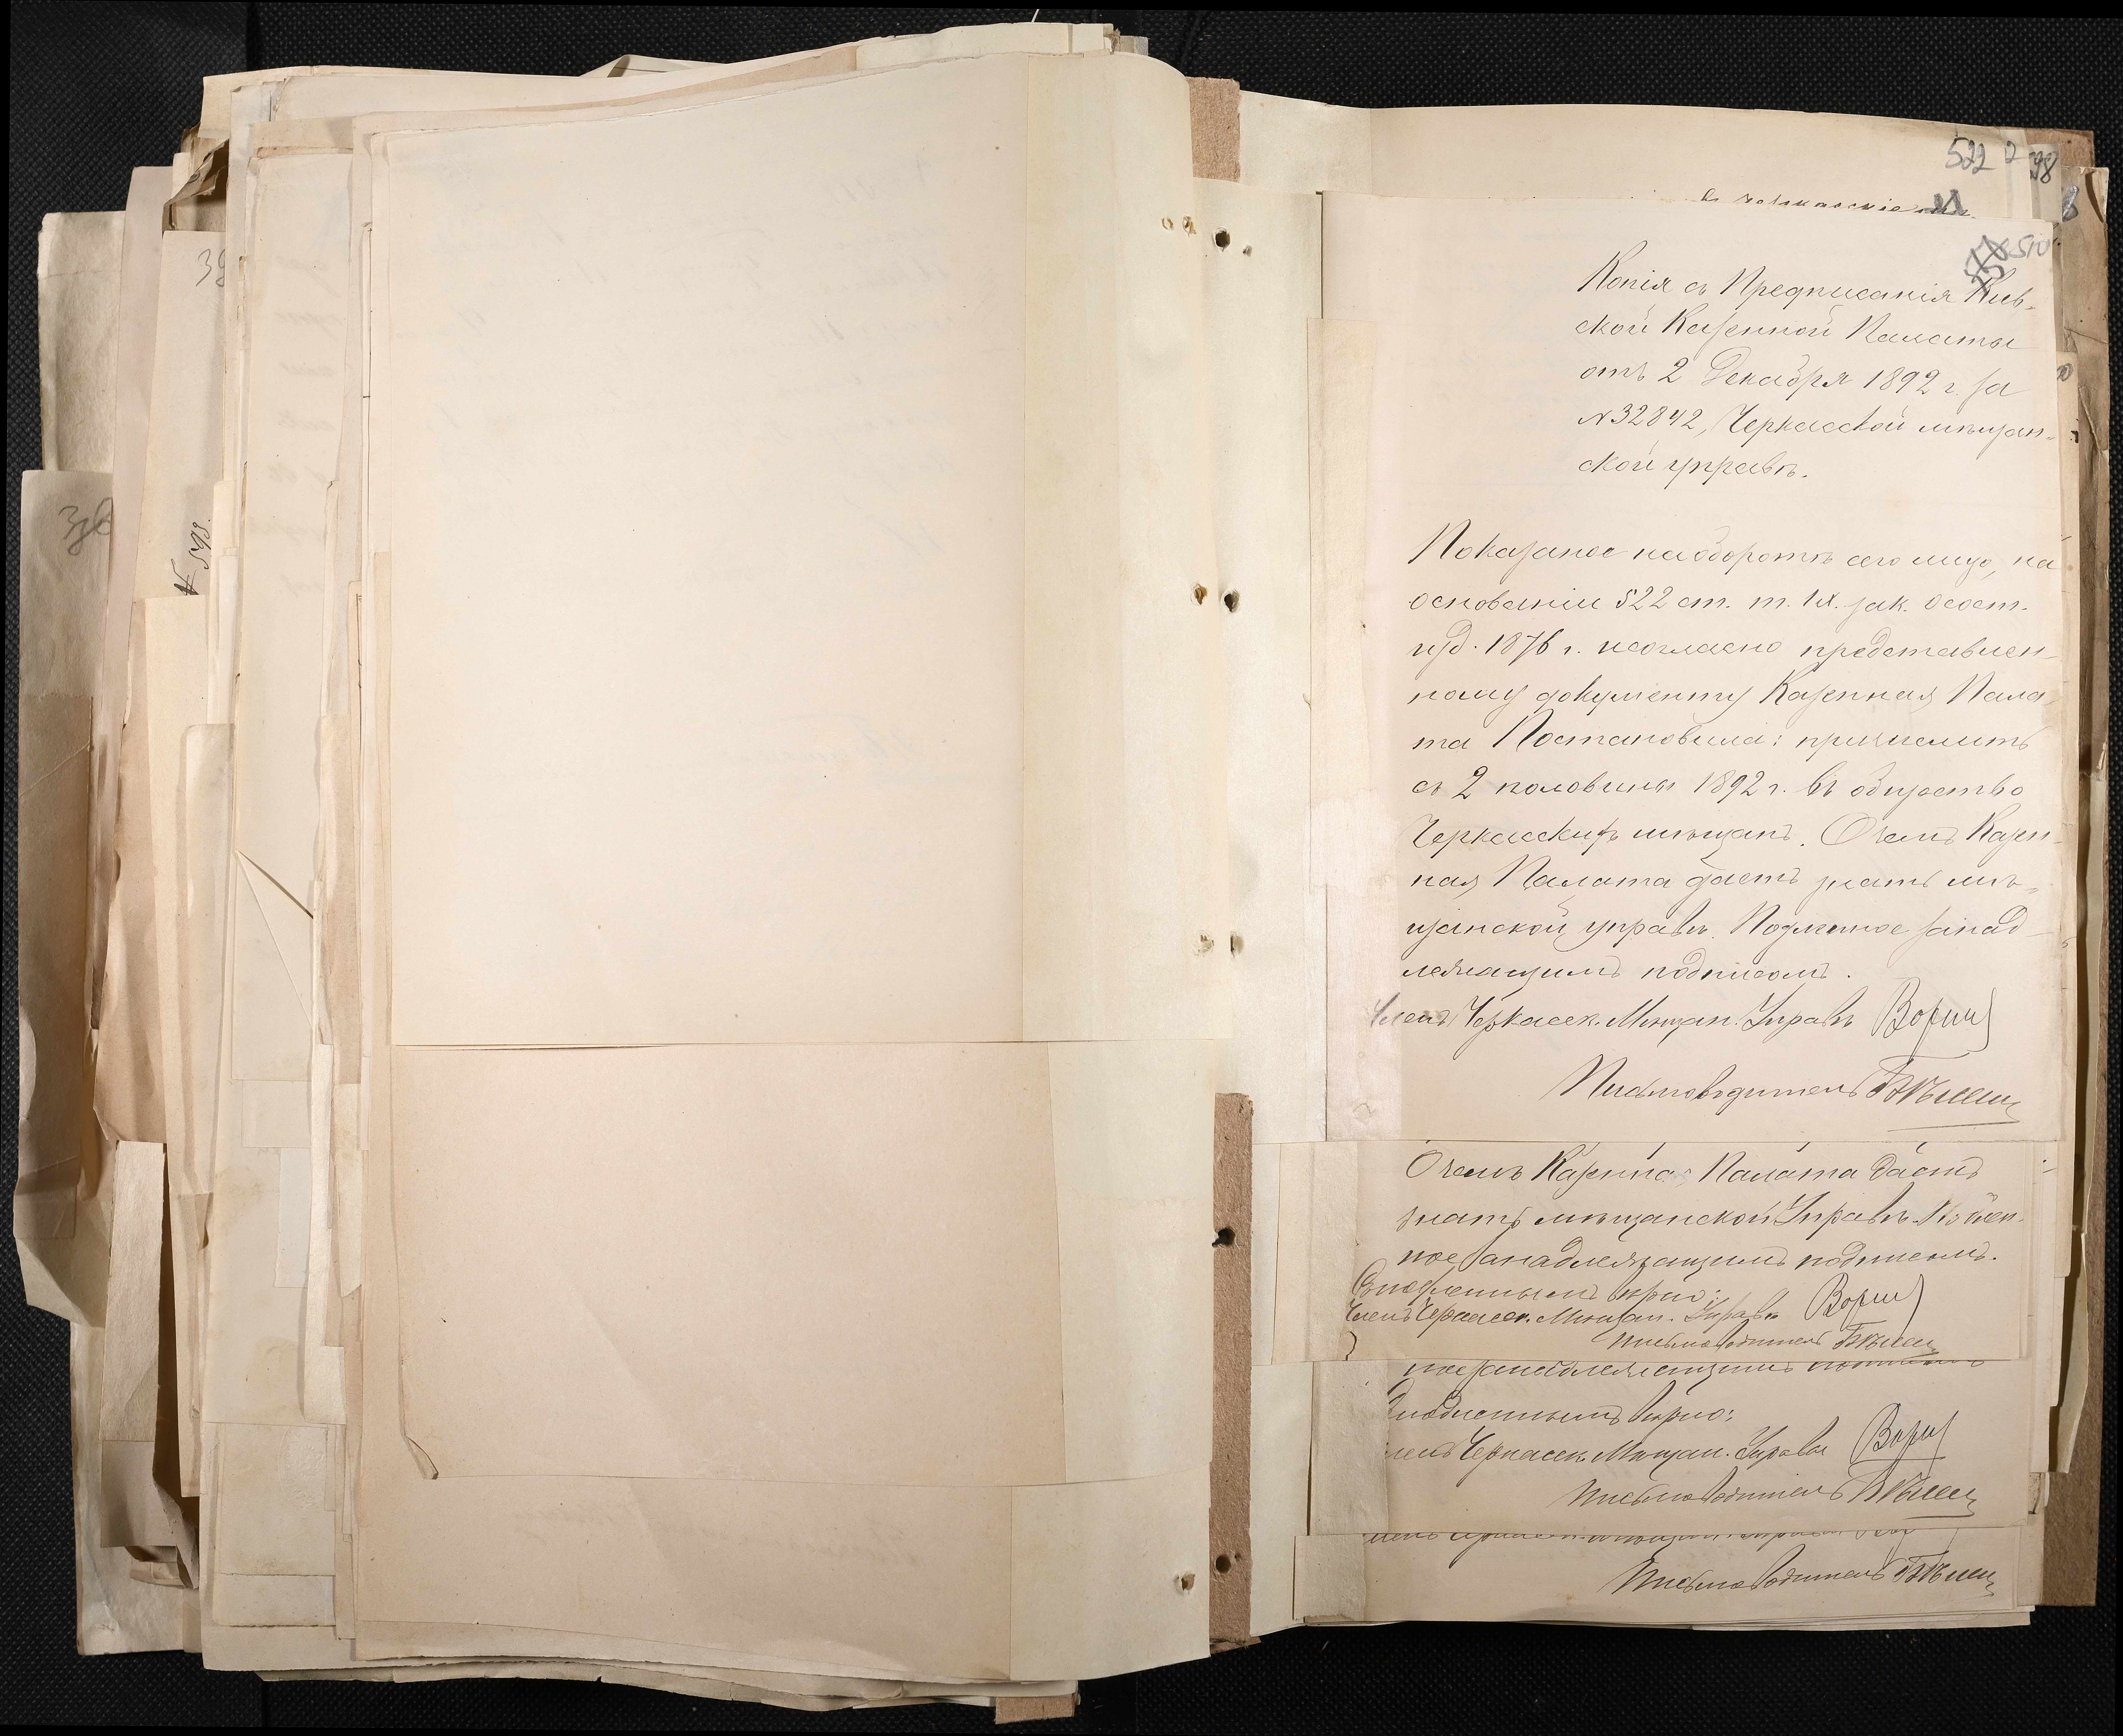 522
398
510
Копія съ Предписанія Кіев-
ской Казенной Палаты
отъ 2 Декабря 1892 г. за
№ 32842, Черкасской мѣщан-
ской управѣ.
Показаное наоборотѣ сего лицо, на
основаніи 522 ст. т. IX. зак. о сост.
изд. 1876 г. и согласно представлен-
ному документу Казенная Пала-
та Постановила: причислить
съ 2 половины 1892 г. въ общество
Черкасскихъ мѣщанъ. О чемъ Казен-
ная Палата даетъ знать мѣ-
щанской управѣ. Подлинное за над-
лежащимъ подписомъ.
Членъ Черкасск. Мѣщан. Управы
Письмоводитель
О чемъ Казенная Палата даетъ
знать мѣщанской Управѣ. Подлен-
ное за надлежащимъ подписомъ.
Съ подленнымъ вѣрно:
Членъ Черкасск. Мѣщан. Управы
Письмоводитель
ное за надлежащимъ подписомъ
подленнымъ вѣрно:
Черкасск. Мѣщан. Управы
Письмоводитель
Письмоводитель
39
№ 593